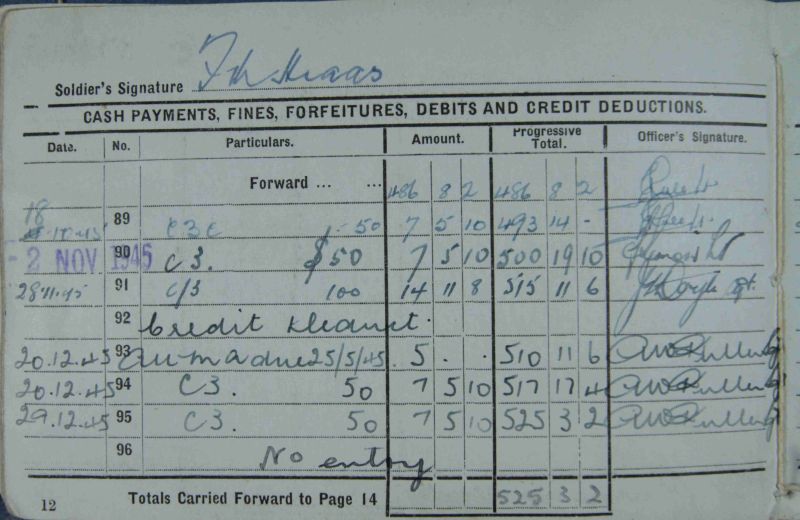 Soldier's Signature Haas
CASH PAYMENTS, FINES, FORFEITURES, DEBITS AND CREDIT DEDUCTIONS.
Date. No. Particulars. Amount. Progressive Total. Officer's Signature.
Forward ... ... 486 8 2 486 8 2
18
.10.45 89 C3 50 7 5 10 493 14 -
- 2 NOV 1945 90 C3. $50 7 5 10 500 19 10
28.11.45 91 C/3 100 14 11 8 515 11 6
92 Credit
20.12.45 93 25/5/45 5 . . 510 11 6
20.12.45 94 C3. 50 7 5 10 517 17 4
29.12.45 95 C3. 50 7 5 10 525 3 2
96 No entry
12 Totals Carried Forward to Page 14 525 3 2